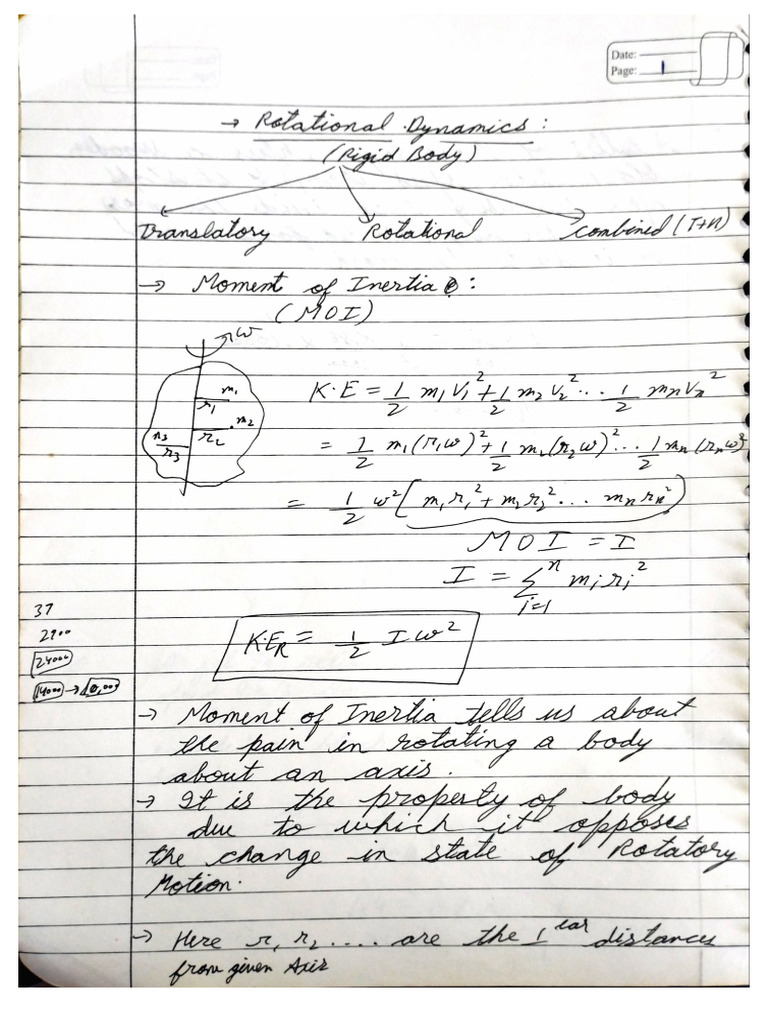 Date:
Page: 1
→ Rotational Dynamics:
(Rigid Body)
Translatory Rotational Combined (T+R)
→ Moment of Inertia :
(MOI)
ω
m₁
r₁
m₂
r₂
m₃
r₃
K.E = 1/2 m₁V₁² + 1/2 m₂V₂² ... 1/2 mₙVₙ²
= 1/2 m₁(r₁ω)² + 1/2 m₂(r₂ω)² ... 1/2 mₙ(rₙω)²
= 1/2 ω² (m₁r₁² + m₂r₂² ... mₙrₙ²)
MOI = I
I = Σⁿᵢ₌₁ mᵢrᵢ²
37
2900
24000
14000 → 10,000
K.E_R = 1/2 I ω²
→ Moment of Inertia tells us about
the pain in rotating a body
about an axis.
→ It is the property of body
due to which it opposes
the change in state of Rotatory
Motion.
→ Here r₁ r₂ .... are the ⊥ᵉᵃʳ distances
from given Axis